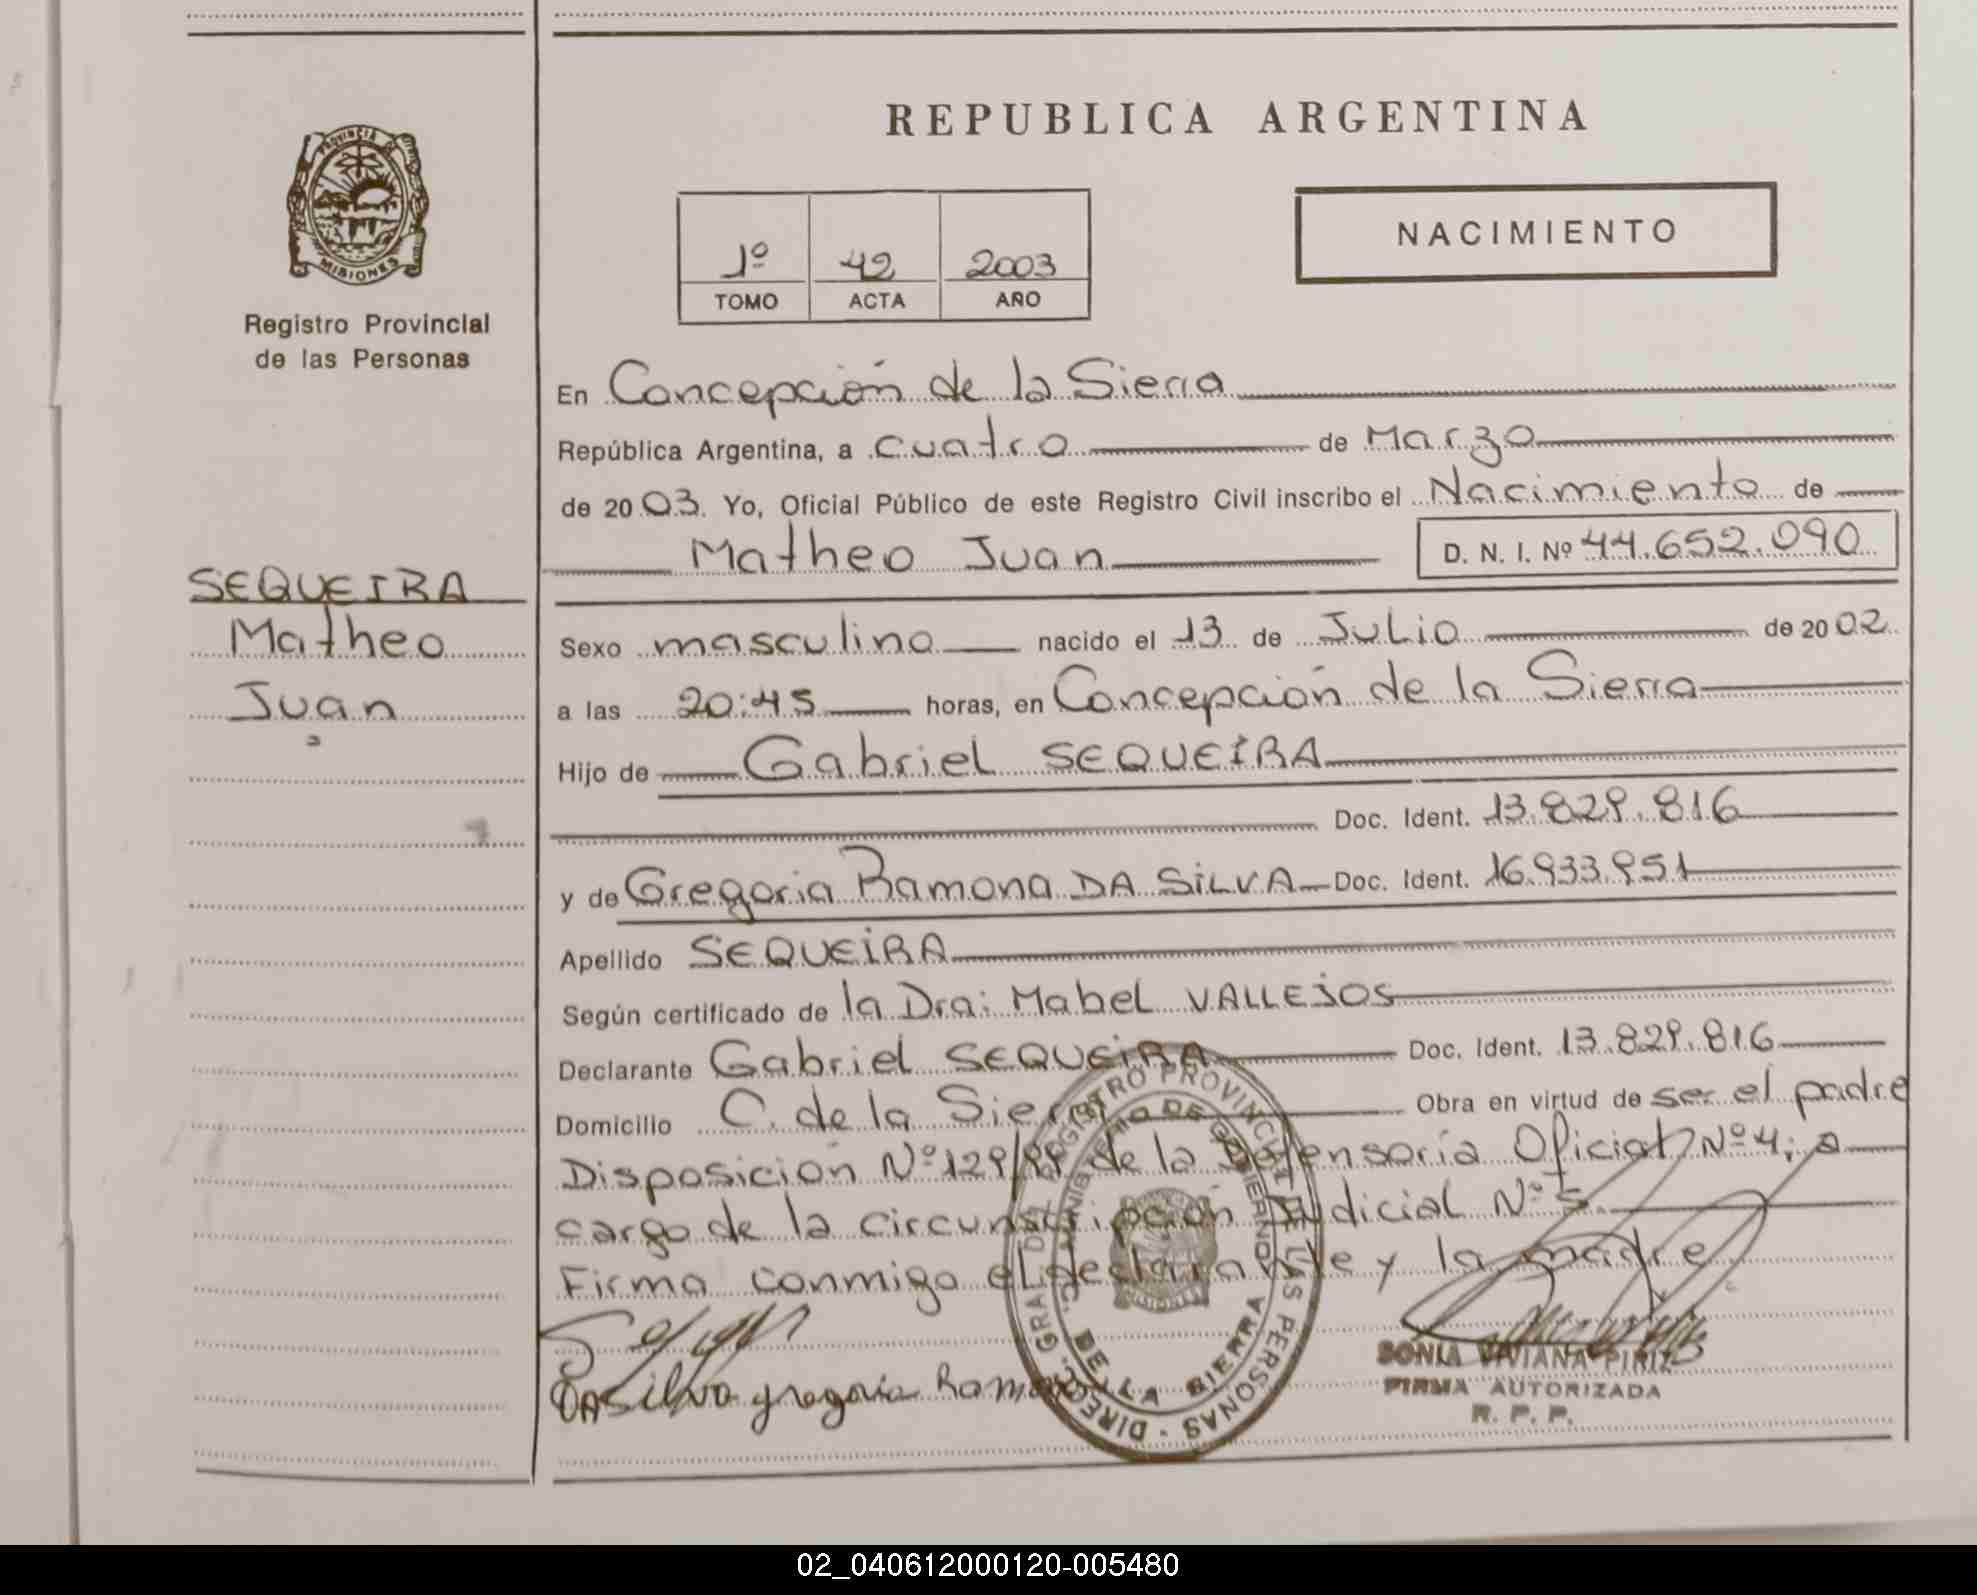 REPUBLICA ARGENTINA
PROVINCIA DE
MISIONES
Registro Provincial
de las Personas
1º 42 2003
TOMO ACTA AÑO
NACIMIENTO
En Concepción de la Sierra
República Argentina, a cuatro de Marzo
de 2003. Yo, Oficial Público de este Registro Civil inscribo el Nacimiento de
Matheo Juan D. N. I. Nº 44.652.090
SEQUEIRA
Matheo
Juan
Sexo masculino nacido el 13 de Julio de 2002
a las 20:45 horas, en Concepción de la Sierra
Hijo de Gabriel SEQUEIRA
Doc. Ident. 13.829.816
y de Gregoria Ramona DA SILVA Doc. Ident. 16.933.951
Apellido SEQUEIRA
Según certificado de la Dra: Mabel VALLEJOS
Declarante Gabriel SEQUEIRA Doc. Ident. 13.829.816
Domicilio C. de la Sierra Obra en virtud de ser el padre
Disposición Nº 129/99 de la Defensoría Oficial Nº 4; a
cargo de la circunscripción Judicial Nº 5.
Firma conmigo el declarante y la madre
DA Silva gregoria Ramona
DIREC. GRAL. DEL REGISTRO PROVINCIAL DE LAS PERSONAS
MINISTERIO DE GOBIERNO
DE LA SIERRA
MISIONES
SONIA VIVIANA PIRIZ
FIRMA AUTORIZADA
R. P. P.
02_040612000120-005480